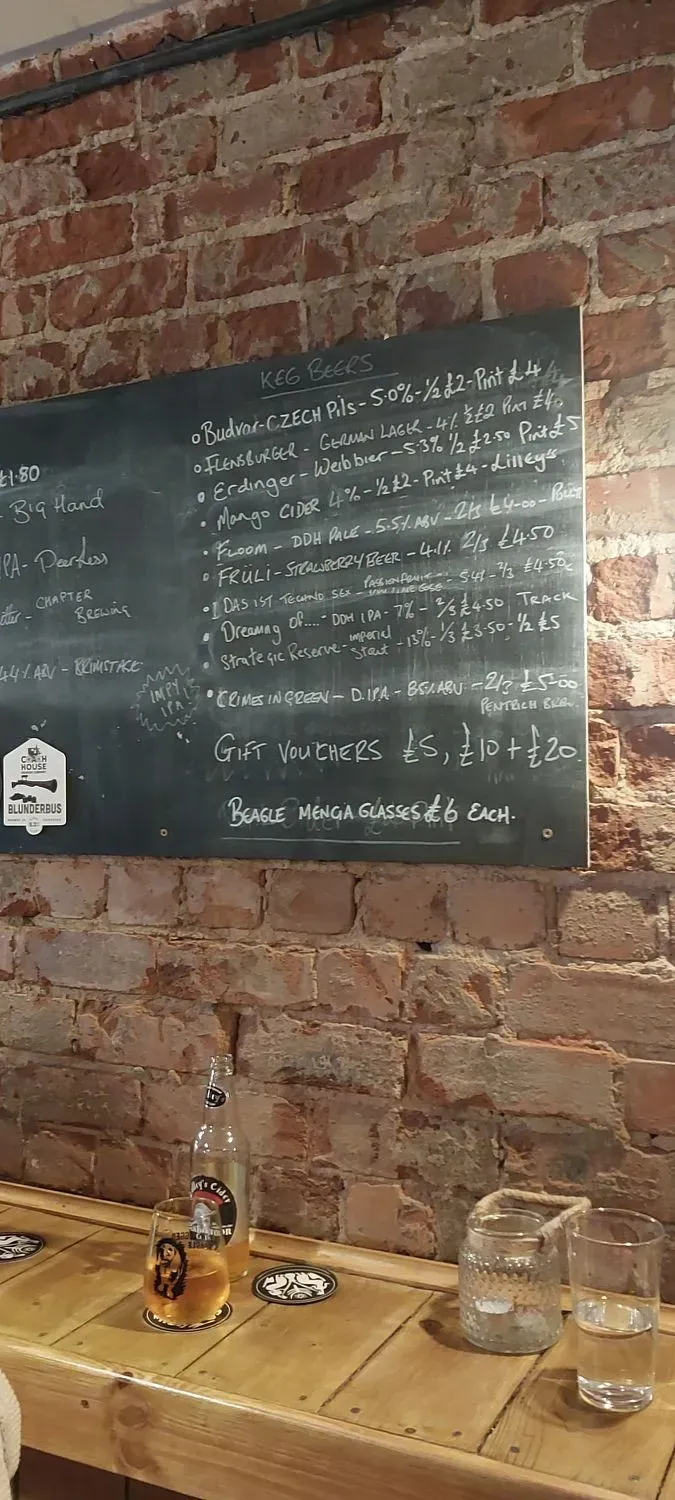 KEG BEERS
Budvar-CZECH Pils-5.0%-½ £2-Pint £4
FLENSBURGER - GERMAN LAGER - 4% ½ £2 PINT £4
Erdinger-Weibbier-5.3% ½ £2.50 Pint £5
Mango CIDER 4%-½ £2-Pint £4-Lilley's
Floom - DDH PALE - 5.5% ABV - 2/3 £4-00 -
FRÜLI-STRAWBERRY BEER - 4.1% 2/3 £4.50
DAS IST TECHNO SEX - PASSIONFRUIT 5.4% - 2/3 £4.50
Dreaming Of.... - DDH IPA - 7% - 2/3 £4.50 TRACK
Strategic Reserve - imperial Stout - 13% - 1/3 £3.50 - ½ £5
CRIMES IN GREEN - D.IPA - 8.5% ABV - 2/3 £5-00
PENTRICH BREW.
GIFT VOUCHERS £5, £10 + £20.
BEAGLE MENGA GLASSES £6 EACH.
£1.80
- Big Hand
IPA - Peerless
CHAPTER
BREWING
4.4% ABV - BRIMSTAGE
IMPY
IPA
COACH
HOUSE
BLUNDERBUS
Cider